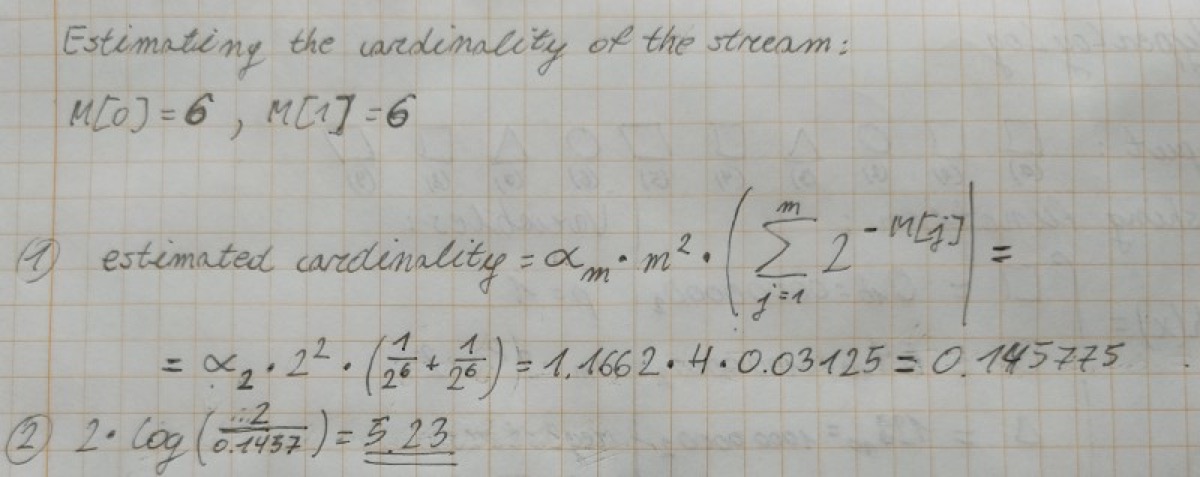 Estimating the cardinality of the stream:
M[0] = 6 , M[1] = 6
① estimated cardinality = α_m · m² · ( ∑_{j=1}^{m} 2^{-M[j]} ) =
= α₂ · 2² · ( 1/2⁶ + 1/2⁶ ) = 1.1662 · 4 · 0.03125 = 0.145775
② 2 · log( 2/0.1457 ) = 5.23